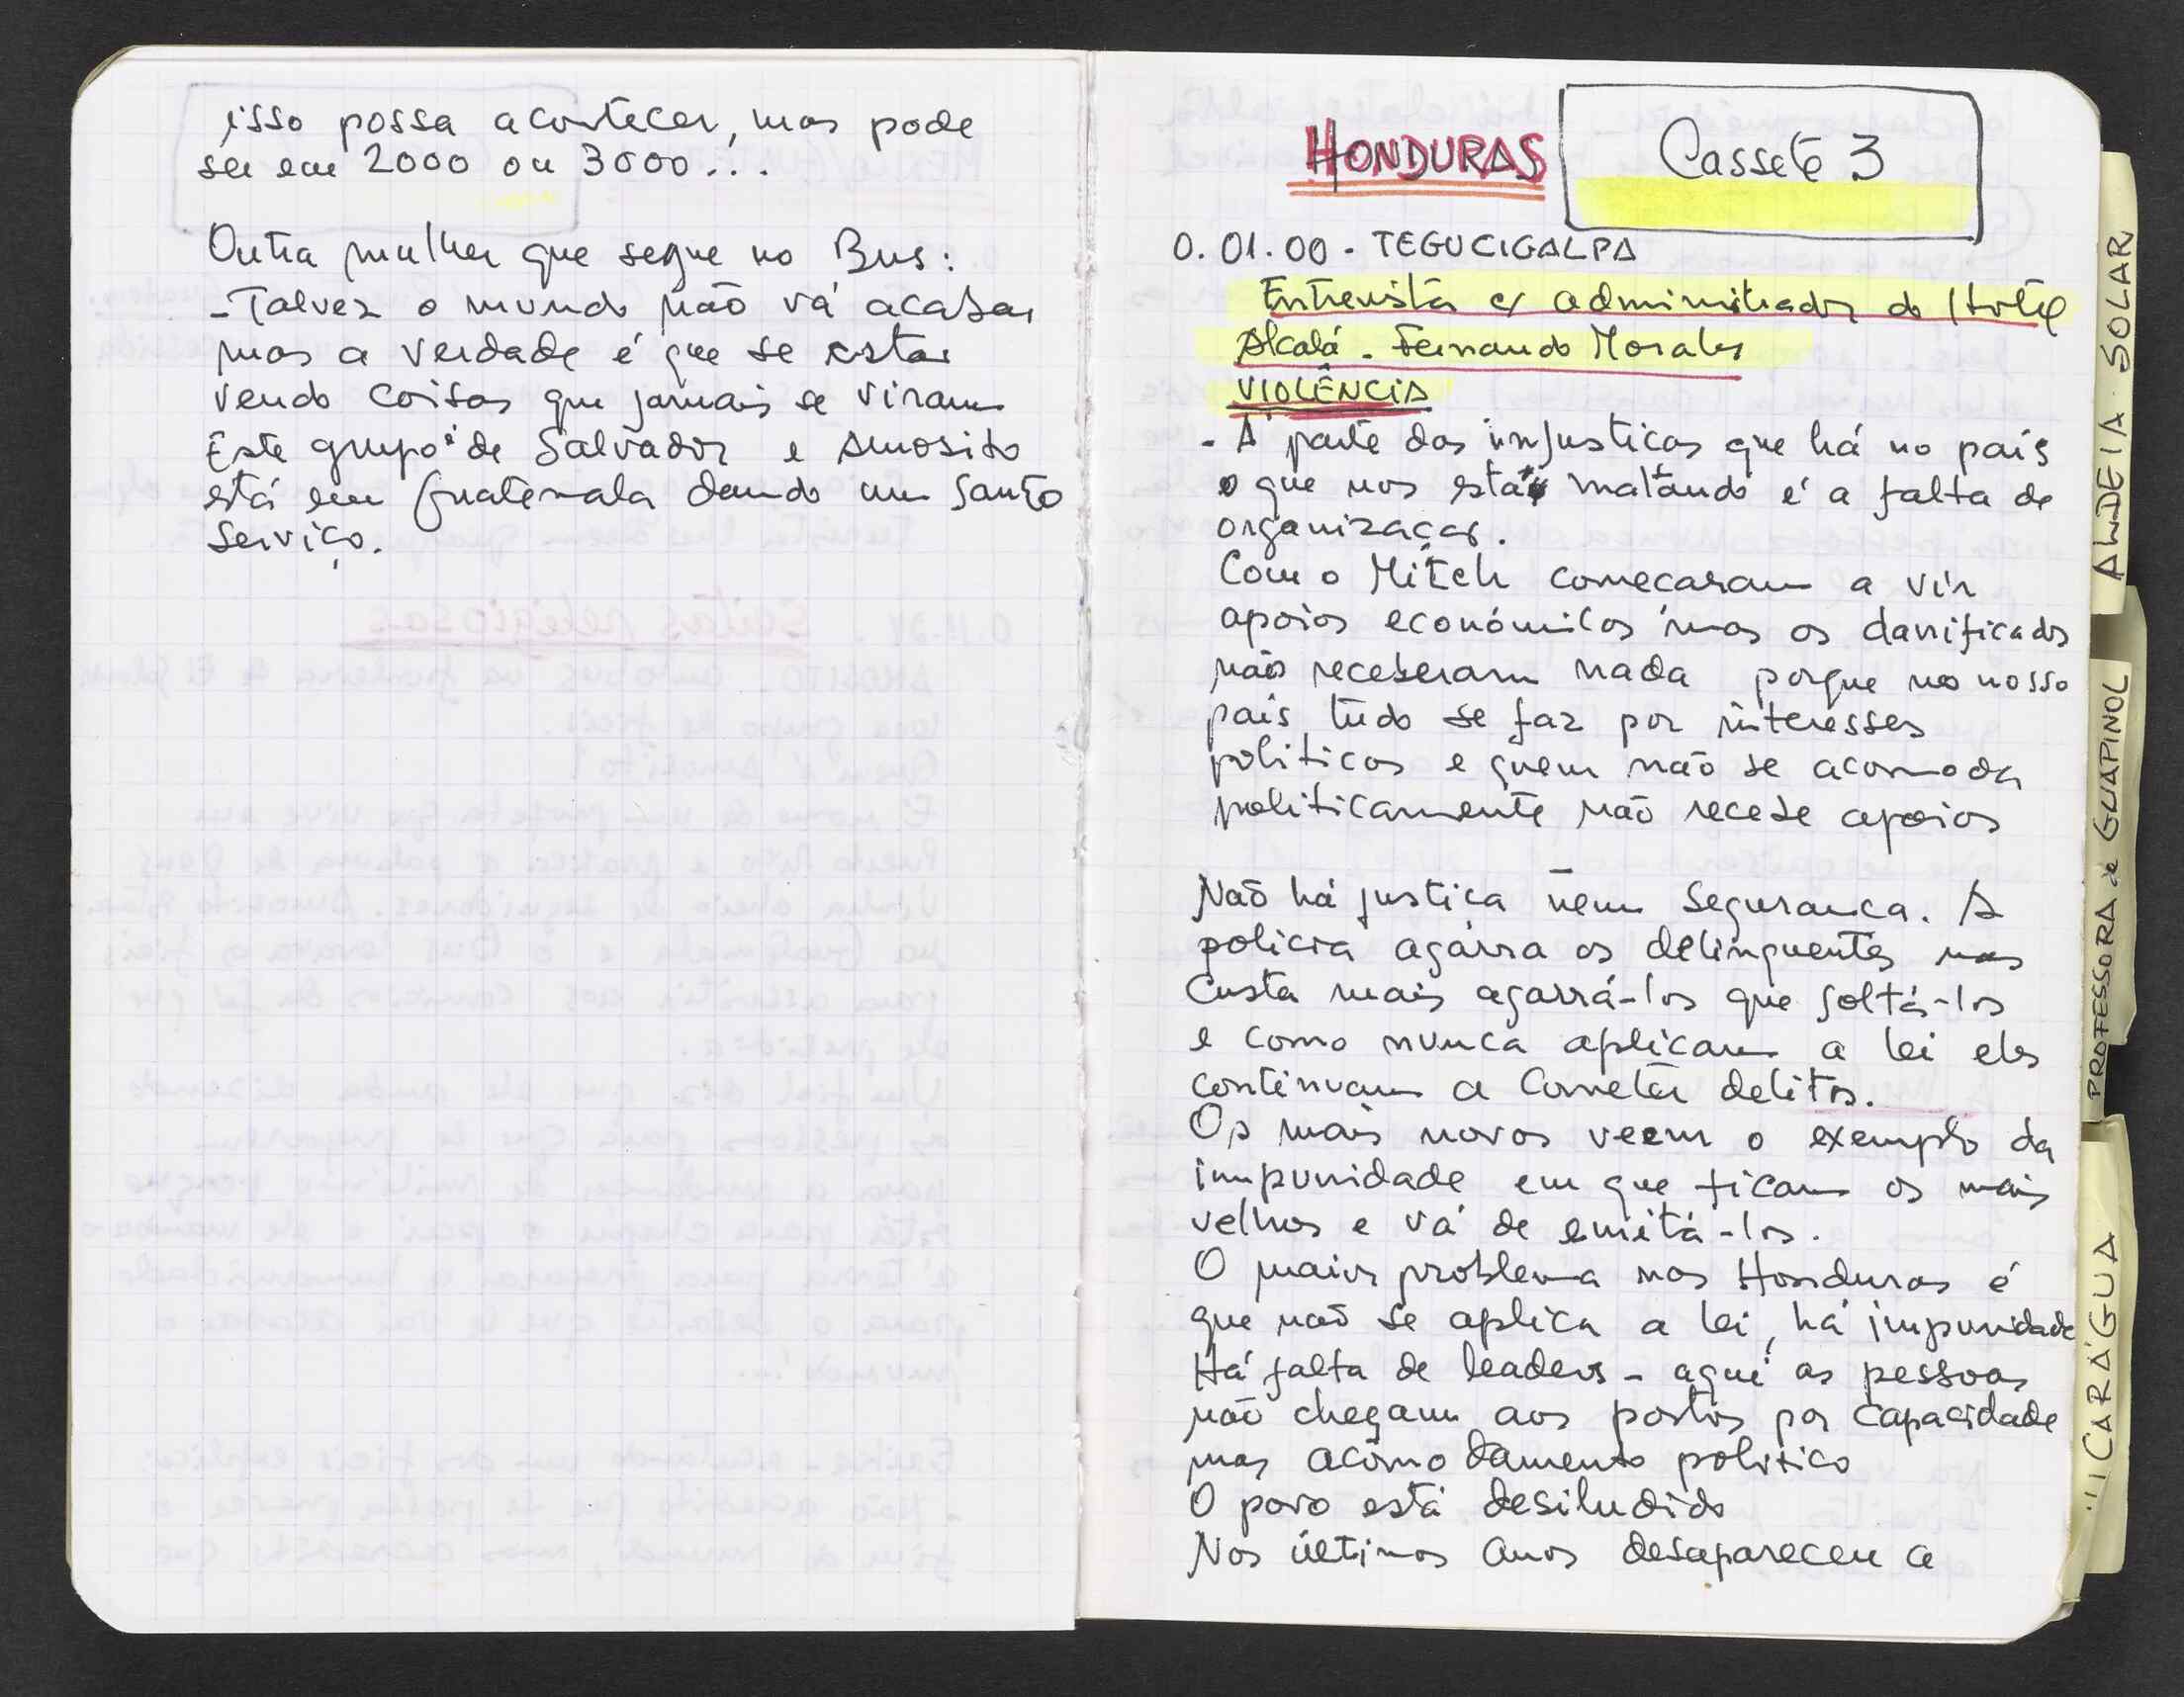 isso possa acontecer, mas pode
ser em 2000 ou 3000...
Outra mulher que segue no Bus:
- Talvez o mundo não vá acabar
mas a verdade é que se estar
vendo coisas que jamais se viram
Este grupo é de Salvador e Amosito
está em Guatemala dando um santo
serviço.
HONDURAS
Cassete 3
0.01.00 - TEGUCIGALPA
Entrevista c/ administrador do Hotel
Alcalá - Fernando Morales
VIOLÊNCIA
- À parte das injusticas que há no país
o que nos está matando é a falta de
organizaçao.
Com o Mitch comecaram a vir
apoios económicos mas os danificados
não receberam nada porque no nosso
país tudo se faz por interesses
politicos e quem não se acomoda
politicamente não recebe apoios
Não há justiça nem Seguranca. A
policia agarra os delinquentes mas
custa mais agarrá-los que soltá-los
e como nunca aplicam a lei eles
continuam a cometer delitos.
Os mais novos veem o exemplo da
impunidade em que ficam os mais
velhos e vá de emitá-los.
O maior problema nas Honduras é
que não se aplica a lei, há impunidade
Há falta de leaders - aqui as pessoas
não chegam aos postos por capacidade
mas acomodamento político
O povo está desiludido
Nos últimos anos desapareceu a
ALDEIA SOLAR
PROFESSORA de GUAPINOL
ICARÁGUA